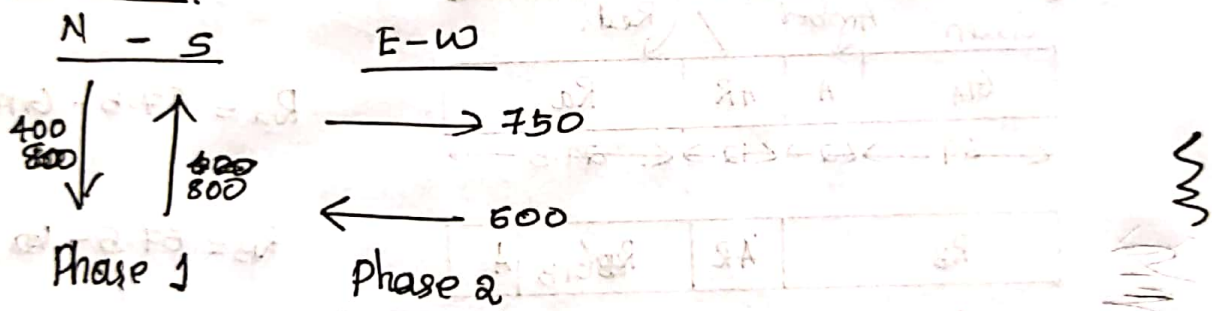 N - S
E-W
400
800
750
600
Phase 1
Phase 2